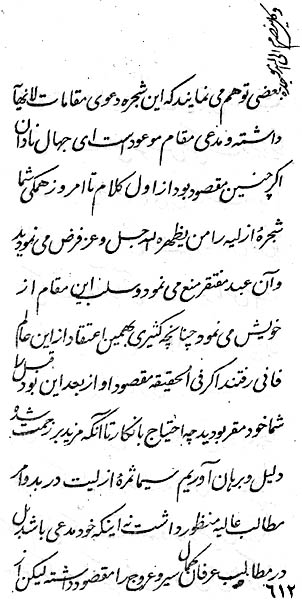 بعضی توهم می نمایند که این شجره دعوی مقامات لانهایة
داشته و مدعی مقام موعود است ای جهال نادان
اگر چنین مقصود بود از اول کلام تا امروز همگی شما
شجرهٔ ازلیه را من یظهره الله جل و عز فرض می نمودید
و آن عبد مفتقر منع می نمود و سلب این مقام از
خویش می نمود چنانچه کثیری بهمین اعتقاد از این عالم
فانی رفتند اگر فی الحقیقه مقصود او از بعد این بود قبل را
شما خود مقر بودید چه احتیاج بانکار تا آنکه مزید بر زحمت شود
دلیل و برهان آوریم سیما ثمرهٔ ازلیت در بدو امر
مطالب عالیه منظور داشت نه اینکه خود مدعی باشد بل
در مطالب عرفان کمال سیر و عروج را مقصود داشته لیکن از
۶۱۲